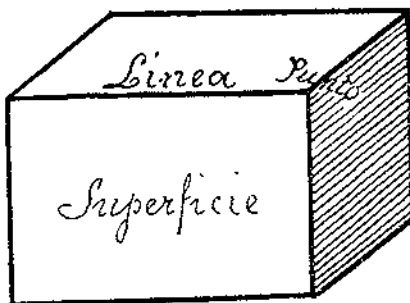 Línea Punto
Superficie